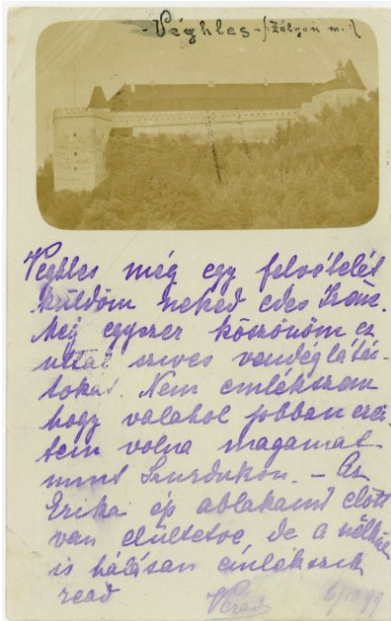 - Véghles - (Zólyom m.)
Véghles még egy felvételét
küldöm neked edes
Még egyszer köszönöm ez
uttal szives vendéglátás-
tokat. Nem emlékszem
hogy valahol jobban érez-
tem volna magamat
mint Szurdukon. - Az
Erika ép ablakaim előtt
van elültetve, de a nélkül
is hálásan emlékszik
read
6/10 99